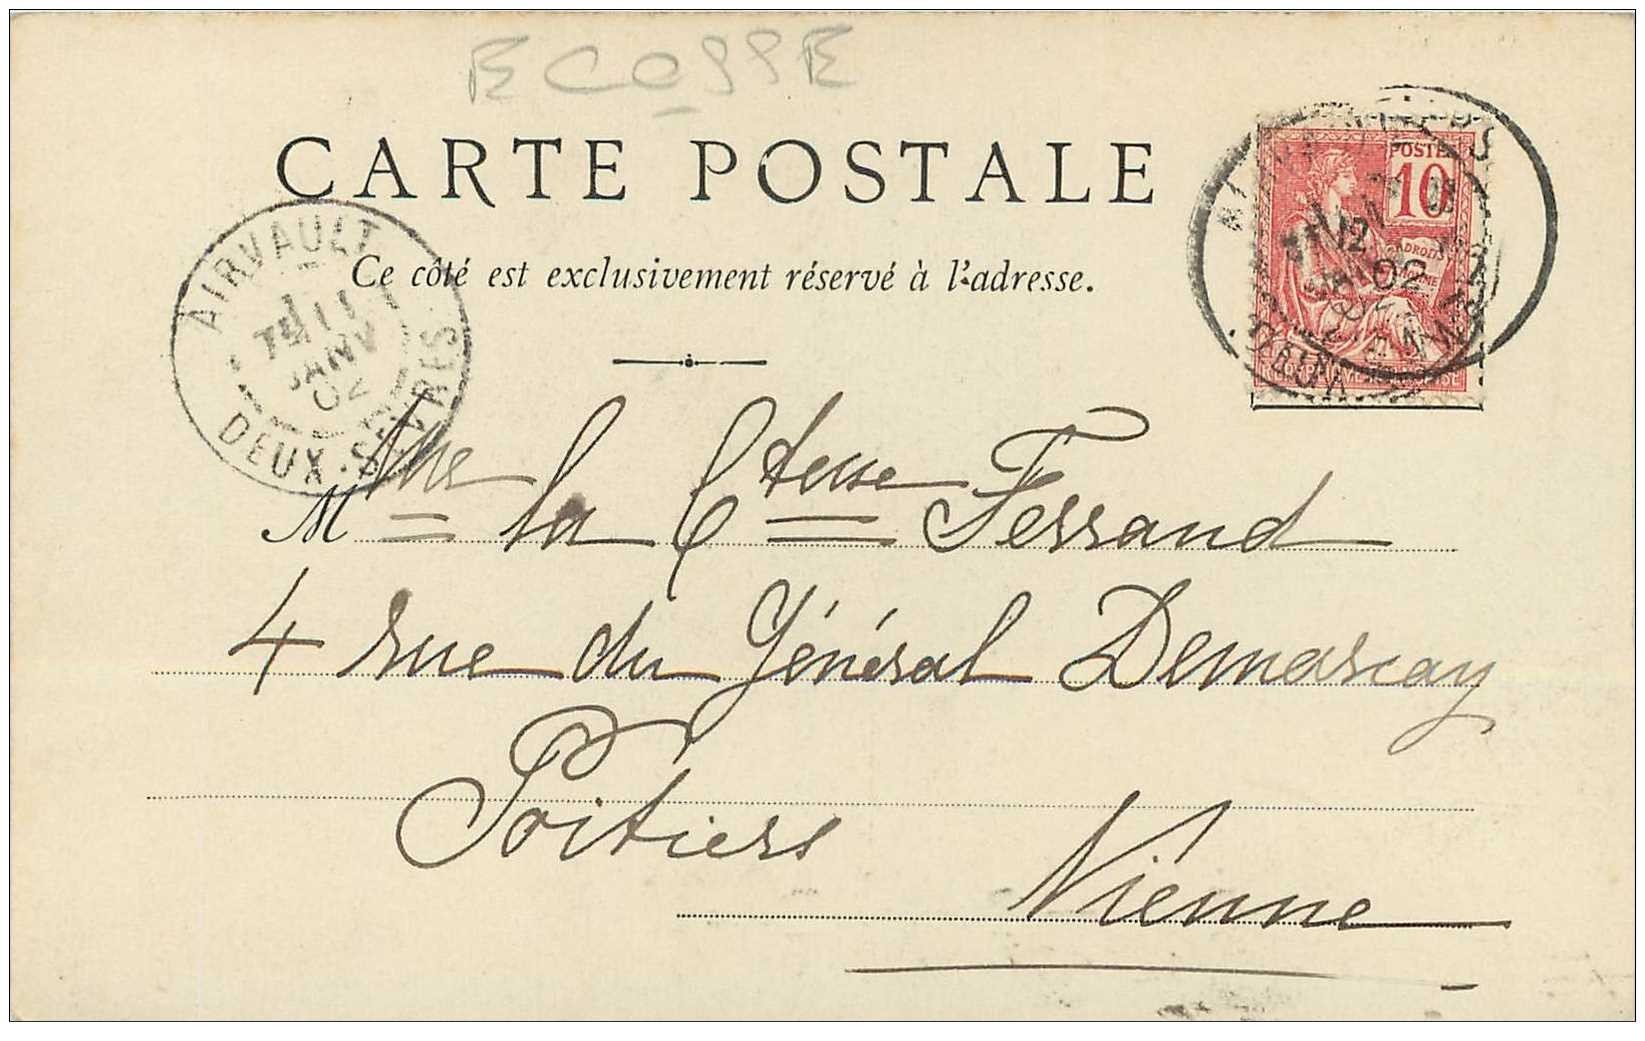 ECOSSE
CARTE POSTALE
Ce côté est exclusivement réservé à l'adresse.
AIRVAULT
11
JANV
02
DEUX-SÈVRES
POSTES
10
12
02
M Mme la Ctesse Ferrand
4 rue du Général Demarcay
Poitiers
Vienne